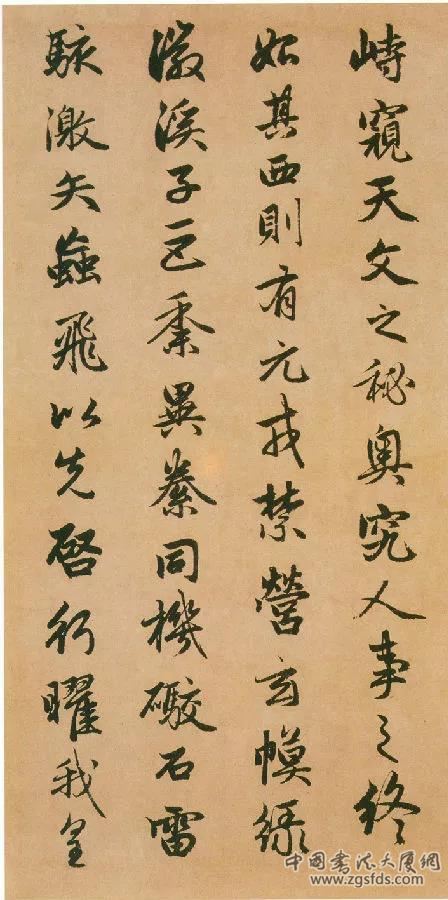 峙窺天文之秘奧究人事之終
始其西則有元戎禁營玄幙緑
徽溪子巨黍異絭同機礮石雷
駭激矢蝱飛以先啓行曜我皇
中國書法大厦網
www.zgsfds.com